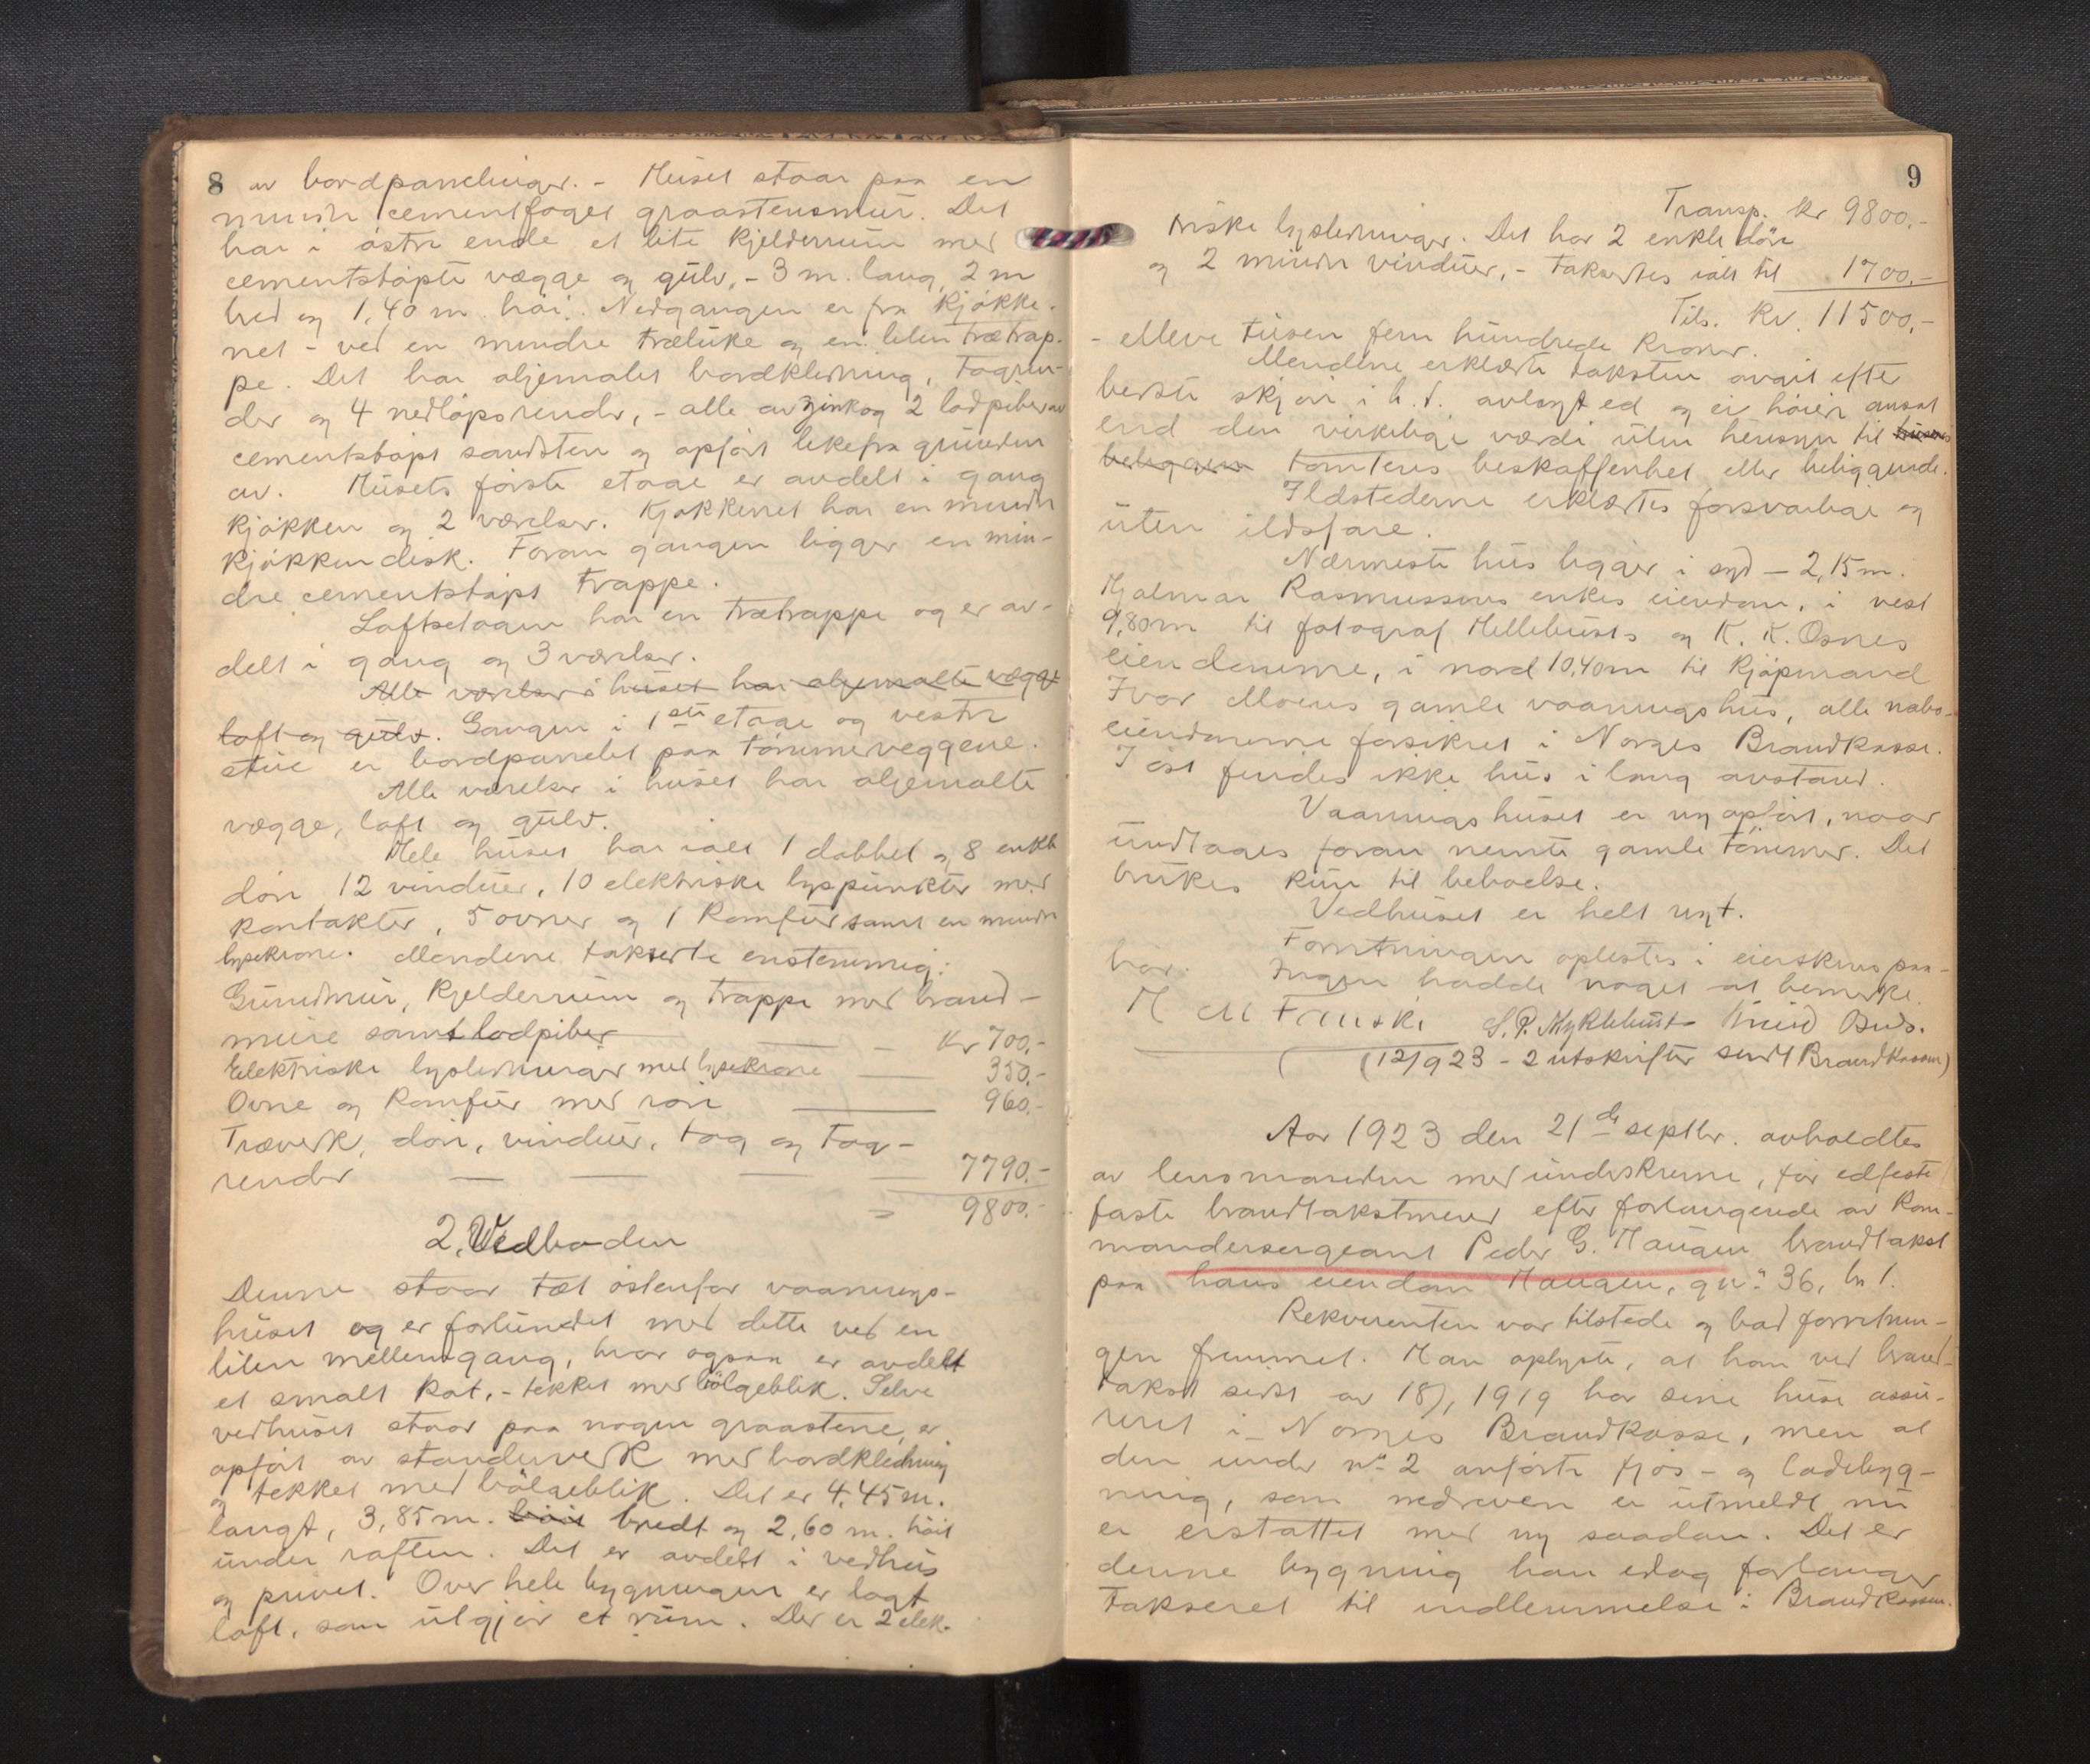 8 av bordpanelinger. - Huset staar paa en
mindre cementfoget graastensmur. Det
har i østre ende et lite kjelderrum med
cementstøpte vægge og gulv, - 3 m. lang, 2 m
bred og 1,40 m. høi. Nedgangen er fra kjøkke-
net - ved en mindre træluke og en liten trætrap-
pe. Det har oljemalet bordklædning, tagren-
der og 4 nedløpsrender, - alle av zink og 2 lodpiber av
cementstøpt sandsten og opført like fra grunden
av. Husets første etage er avdelt i gang
kjøkken og 2 værelser. Kjøkkenet har en mindre
kjøkkendisk. Foran gangen ligger en min-
dre cementstøpt trappe.
Loftsetagen har en trætrappe og er av-
delt i gang og 3 værelser.
Alle værelser i huset har oljemalte vægge
loft og gulv. Gangen i 1ste etage og vestre
stue er bordpanelet paa tømmerveggene.
Alle værelser i huset har oljemalte
vægge, loft og gulv.
Hele huset har ialt 1 dobbel og 8 enkle
dører 12 vinduer, 10 elektriske lyspunkter med
kontakter, 5 ovner og 1 komfur samt en mindre
lysekrone. Mendene takserte enstemmig:
Grundmur, kjelderrum og trappe med brand-
mure samt lodpiber — Kr 700,-
Elektriske lysledninger med lysekrone — 350,-
Ovne og komfur med rør — 960,-
Træverk, dører, vinduer, tag og tag-
render — — — 7790,-
= 9800,-
2. Vedboden
Denne staar tæt østenfor vaanings-
huset og er forbundet med dette ved en
liten mellemgang, hvor ogsaa er avdelt
et smalt kot, - tekket med bølgeblik. Selve
vedhuset staar paa nogen graastene, er
opført av stenderverk med bordkledning
og tekket med bølgeblik. Det er 4,45 m.
langt, 3,85 m. høit bredt og 2,60 m. høit
under raften. Det er avdelt i vedhus
og privet. Over hele bygningen er lagt
loft, som utgjør et rum. Der er 2 elek-
9
Transp. kr 9800,-
triske lysledninger. Det har 2 enkle døre
og 2 mindre vinduer, - Taksertes ialt til 1700,-
Tils. Kr. 11500,-
- elleve tusen fem hundrede kroner.
Mendene erklærte taksten avgit efter
beste skjøn i h. t. avlagt ed og ei høiere ansat
end den virkelige værdi uten hensyn til husets
beliggen tomtens beskaffenhet eller beliggende.
Ildstederne erklærtes forsvarlige og
uten ildsfare.
Nærmeste hus ligger i syd - 2,15 m.
Hjalmar Rasmussens enkes eiendom, i vest
9,80 m til fotograf Hellebusts og K. K. Osnes
eiendomme, i nord 10,40 m til kjøpmand
Ivar Moens gamle vaaningshus, alle nabo-
eiendommene forsikret i Norges Brandkasse.
I øst findes ikke hus i lang avstand.
Vaaningshuset er ny opført, naar
undtages foran nemte gamle tømmer. Det
brukes kun til beboelse.
Vedhuset er helt nyt.
Forretningen oplestes i eierskens paa-
hør. Ingen hadde noget at bemerke.
S. P. Myklebust Knud
(12/9 23 - 2 utskrifter sendt Brandkassen)
Aar 1923 den 21de septbr. avholdtes
av lensmanden med underskrevne, før edfeste
faste brandtakstmend efter forlangende av kom-
mandersergeant Peder G. Haugen brandtakst
paa hans eiendom Haugen, gn. 36, bn 1.
Rekvirenten var tilstede og bad forretnin-
gen fremmet. Han oplyste, at han ved brand-
takst sidst av 18/, 1919 har sine huse assu-
reret i Norges Brandkasse, men at
den under no 2 anførte fjøs- og ladebyg-
ning, som nedreven er utmeldt, nu
er erstattet med ny saadan. Det er
denne bygning han idag forlanger
takseret til indlemmelse i Brandkassen.